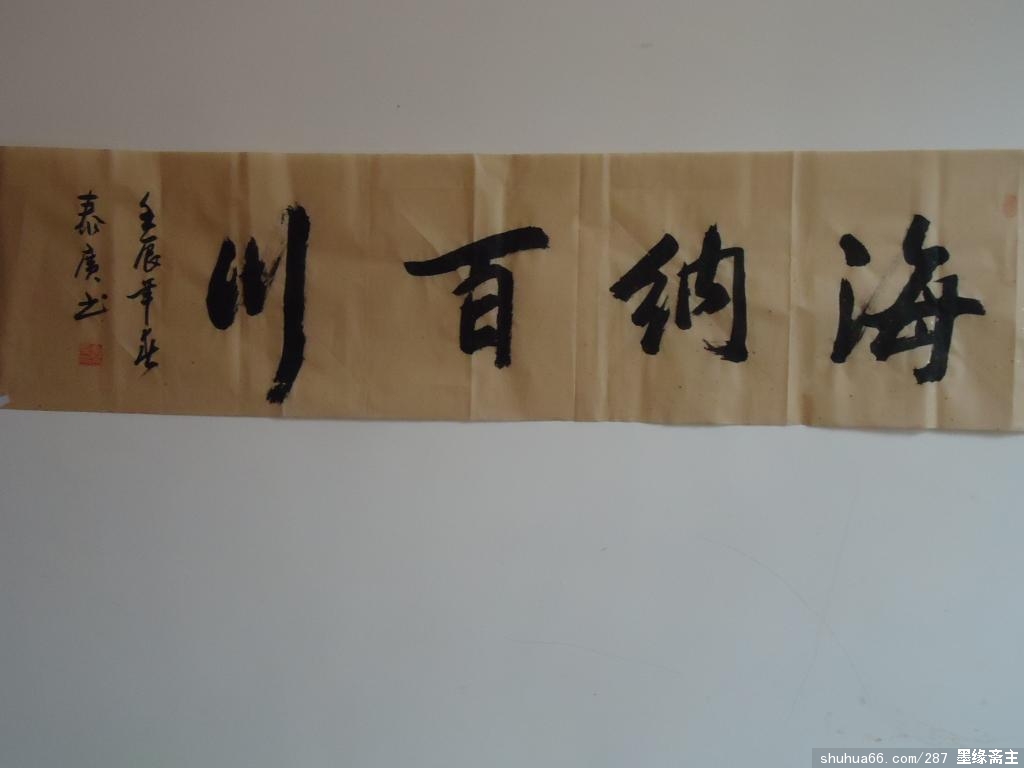 海纳百川
壬辰年春
泰广书
shuhua66.com/287 墨缘斋主